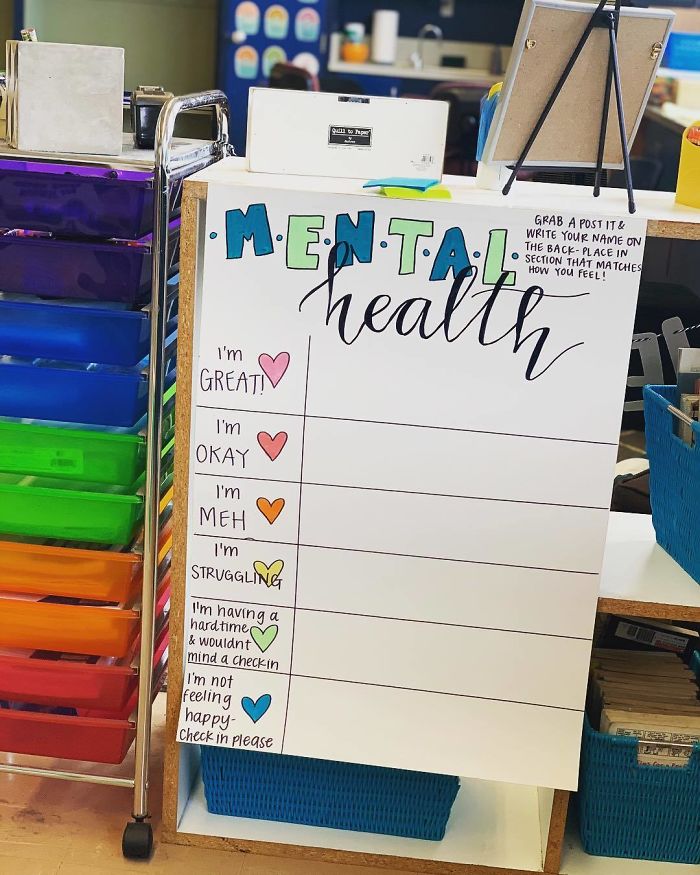 Quill to Paper
MENTAL
health
GRAB A POST IT &
WRITE YOUR NAME ON
THE BACK- PLACE IN
SECTION THAT MATCHES
HOW YOU FEEL!
I'm
GREAT!
I'm
OKAY
I'm
MEH
I'm
STRUGGLING
I'm having a
hard time
& wouldnt
mind a checkin
I'm not
feeling
happy-
Check in please